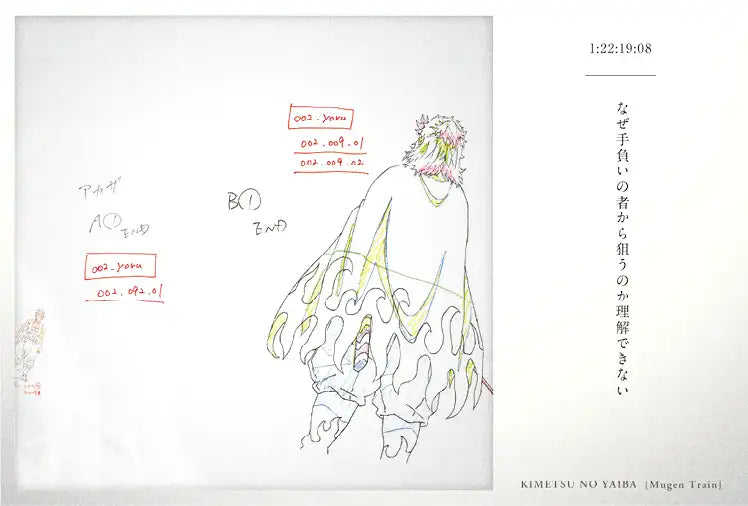 1:22:19:08
なぜ手負いの者から狙うのか理解できない
002_yoru
002_009_01
002_009_02
アカザ
A① END
B① END
002_yoru
002_092_01
KIMETSU NO YAIBA [Mugen Train]